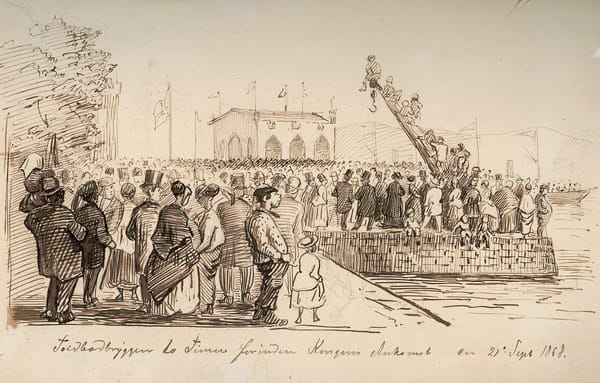 Toldbodbryggen to Timer forinden Kongens Ankomst en 21' Sept 1868.